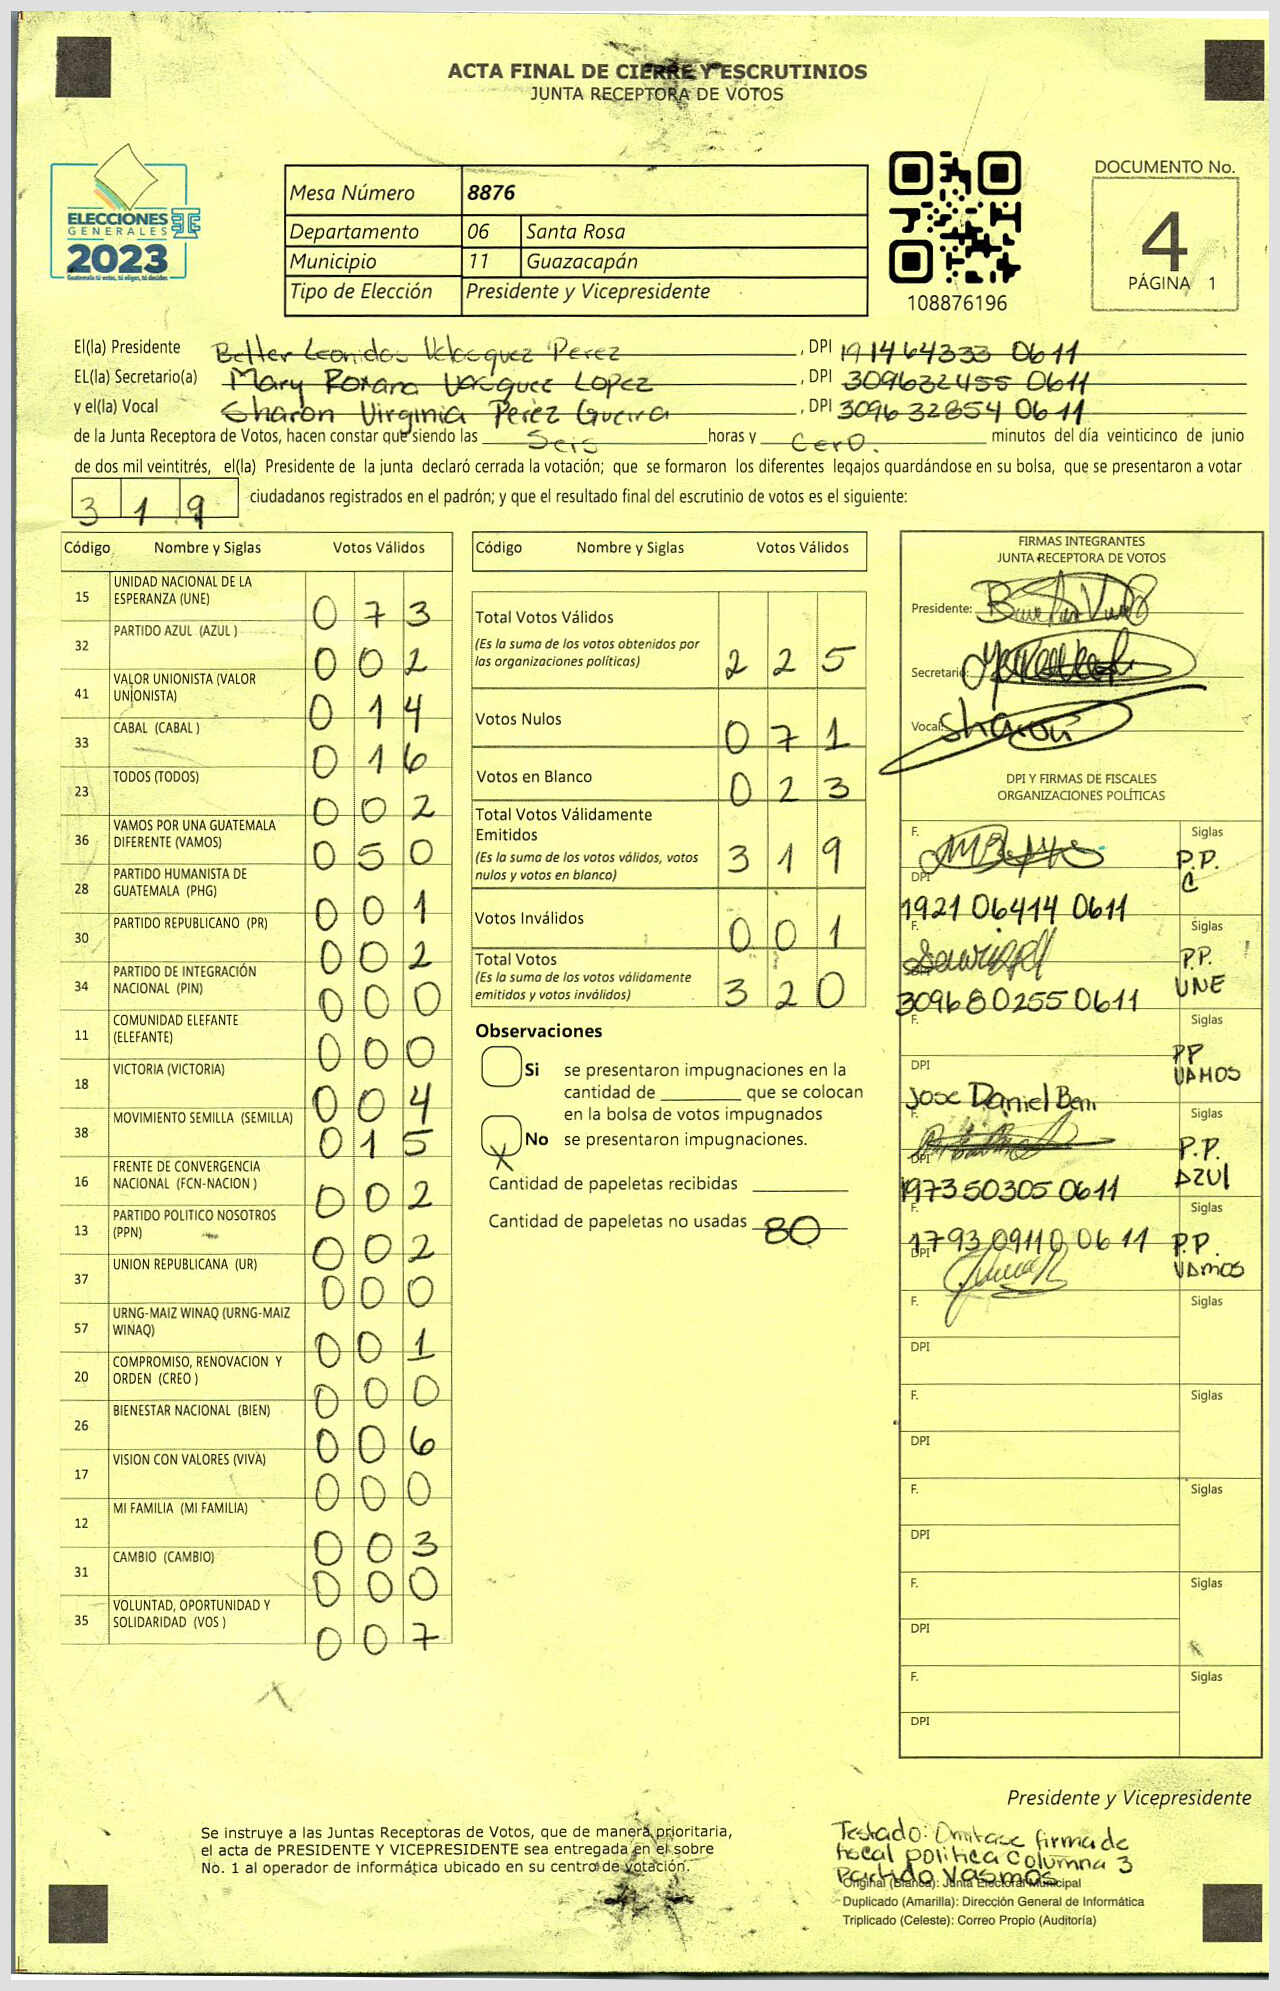 ACTA FINAL DE CIERRE Y ESCRUTINIOS
JUNTA RECEPTORA DE VOTOS
ELECCIONES
GENERALES
2023
Guatemala tú votas, tú eliges, tú decides
Mesa Número 8876
Departamento 06 Santa Rosa
Municipio 11 Guazacapán
Tipo de Elección Presidente y Vicepresidente
108876196
DOCUMENTO No.
4
PÁGINA 1
El(la) Presidente Belter Leonidas Velasquez Perez , DPI 191464333 0611
EL(la) Secretario(a) Mary Roxana Vasquez Lopez , DPI 309632455 0611
y el(la) Vocal Sharon Virginia Perez Gueira , DPI 3096 32854 0611
de la Junta Receptora de Votos, hacen constar que siendo las Seis horas y Cero. minutos del día veinticinco de junio
de dos mil veintitrés, el(la) Presidente de la junta declaró cerrada la votación; que se formaron los diferentes legajos guardándose en su bolsa, que se presentaron a votar
319 ciudadanos registrados en el padrón; y que el resultado final del escrutinio de votos es el siguiente:
Código Nombre y Siglas Votos Válidos
15 UNIDAD NACIONAL DE LA ESPERANZA (UNE) 073
32 PARTIDO AZUL (AZUL ) 002
41 VALOR UNIONISTA (VALOR UNIONISTA) 014
33 CABAL (CABAL ) 016
23 TODOS (TODOS) 002
36 VAMOS POR UNA GUATEMALA DIFERENTE (VAMOS) 050
28 PARTIDO HUMANISTA DE GUATEMALA (PHG) 001
30 PARTIDO REPUBLICANO (PR) 002
34 PARTIDO DE INTEGRACIÓN NACIONAL (PIN) 000
11 COMUNIDAD ELEFANTE (ELEFANTE) 000
18 VICTORIA (VICTORIA) 004
38 MOVIMIENTO SEMILLA (SEMILLA) 015
16 FRENTE DE CONVERGENCIA NACIONAL (FCN-NACION ) 002
13 PARTIDO POLITICO NOSOTROS (PPN) 002
37 UNION REPUBLICANA (UR) 000
57 URNG-MAIZ WINAQ (URNG-MAIZ WINAQ) 001
20 COMPROMISO, RENOVACION Y ORDEN (CREO ) 000
26 BIENESTAR NACIONAL (BIEN) 006
17 VISION CON VALORES (VIVA) 000
12 MI FAMILIA (MI FAMILIA) 003
31 CAMBIO (CAMBIO) 000
35 VOLUNTAD, OPORTUNIDAD Y SOLIDARIDAD (VOS ) 007
Código Nombre y Siglas Votos Válidos
Total Votos Válidos
(Es la suma de los votos obtenidos por
las organizaciones políticas) 225
Votos Nulos 071
Votos en Blanco 023
Total Votos Válidamente
Emitidos
(Es la suma de los votos válidos, votos
nulos y votos en blanco) 319
Votos Inválidos 001
Total Votos
(Es la suma de los votos válidamente
emitidos y votos inválidos) 320
Observaciones
Si se presentaron impugnaciones en la
cantidad de ________ que se colocan
en la bolsa de votos impugnados
X No se presentaron impugnaciones.
Cantidad de papeletas recibidas
Cantidad de papeletas no usadas 80
FIRMAS INTEGRANTES
JUNTA RECEPTORA DE VOTOS
Presidente:
Secretario:
Vocal: Sharon
DPI Y FIRMAS DE FISCALES
ORGANIZACIONES POLÍTICAS
F. Siglas
P.P.
C
DPI
1921 06414 0611
F. Siglas
P.P.
UNE
DPI
3096 80255 0611
F. Siglas
PP
VAMOS
DPI
Jose Daniel Beni
F. Siglas
P.P.
AZUL
DPI
1973 50305 0611
F. Siglas
1793 09110 06 11
P.P.
VAMOS
DPI
F. Siglas
DPI
F. Siglas
DPI
F. Siglas
DPI
F. Siglas
DPI
F. Siglas
DPI
Presidente y Vicepresidente
Se instruye a las Juntas Receptoras de Votos, que de manera prioritaria,
el acta de PRESIDENTE Y VICEPRESIDENTE sea entregada en el sobre
No. 1 al operador de informática ubicado en su centro de votación.
Testado: Omitase firma de
fiscal politica Columna 3
Partido Vasmos
Original (Blanca): Junta Electoral Municipal
Duplicado (Amarilla): Dirección General de Informática
Triplicado (Celeste): Correo Propio (Auditoría)